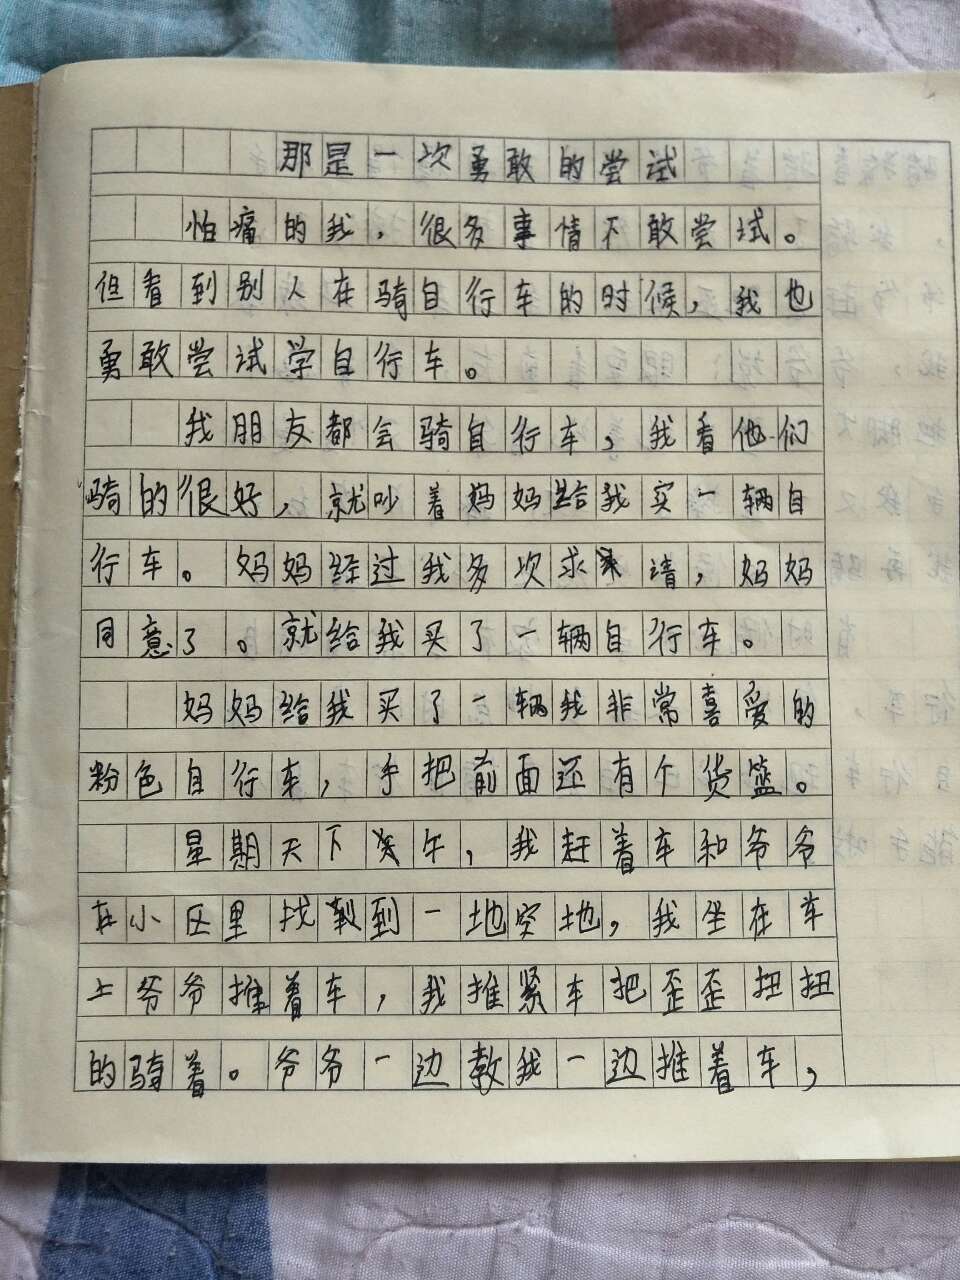 那是一次勇敢的尝试
怕痛的我，很多事情不敢尝试。
但看到别人在骑自行车的时候，我也
勇敢尝试学自行车。
我朋友都会骑自行车，我看他们
骑的很好，就吵着妈妈给我买一辆自
行车。妈妈经过我多次求请，妈妈
同意了。就给我买了一辆自行车。
妈妈给我买了一辆我非常喜爱的
粉色自行车，手把前面还有个货篮。
星期天下午，我赶着车和爷爷
在小区里找到一地空地，我坐在车
上爷爷推着车，我推紧车把歪歪扭扭
的骑着。爷爷一边教我一边推着车，